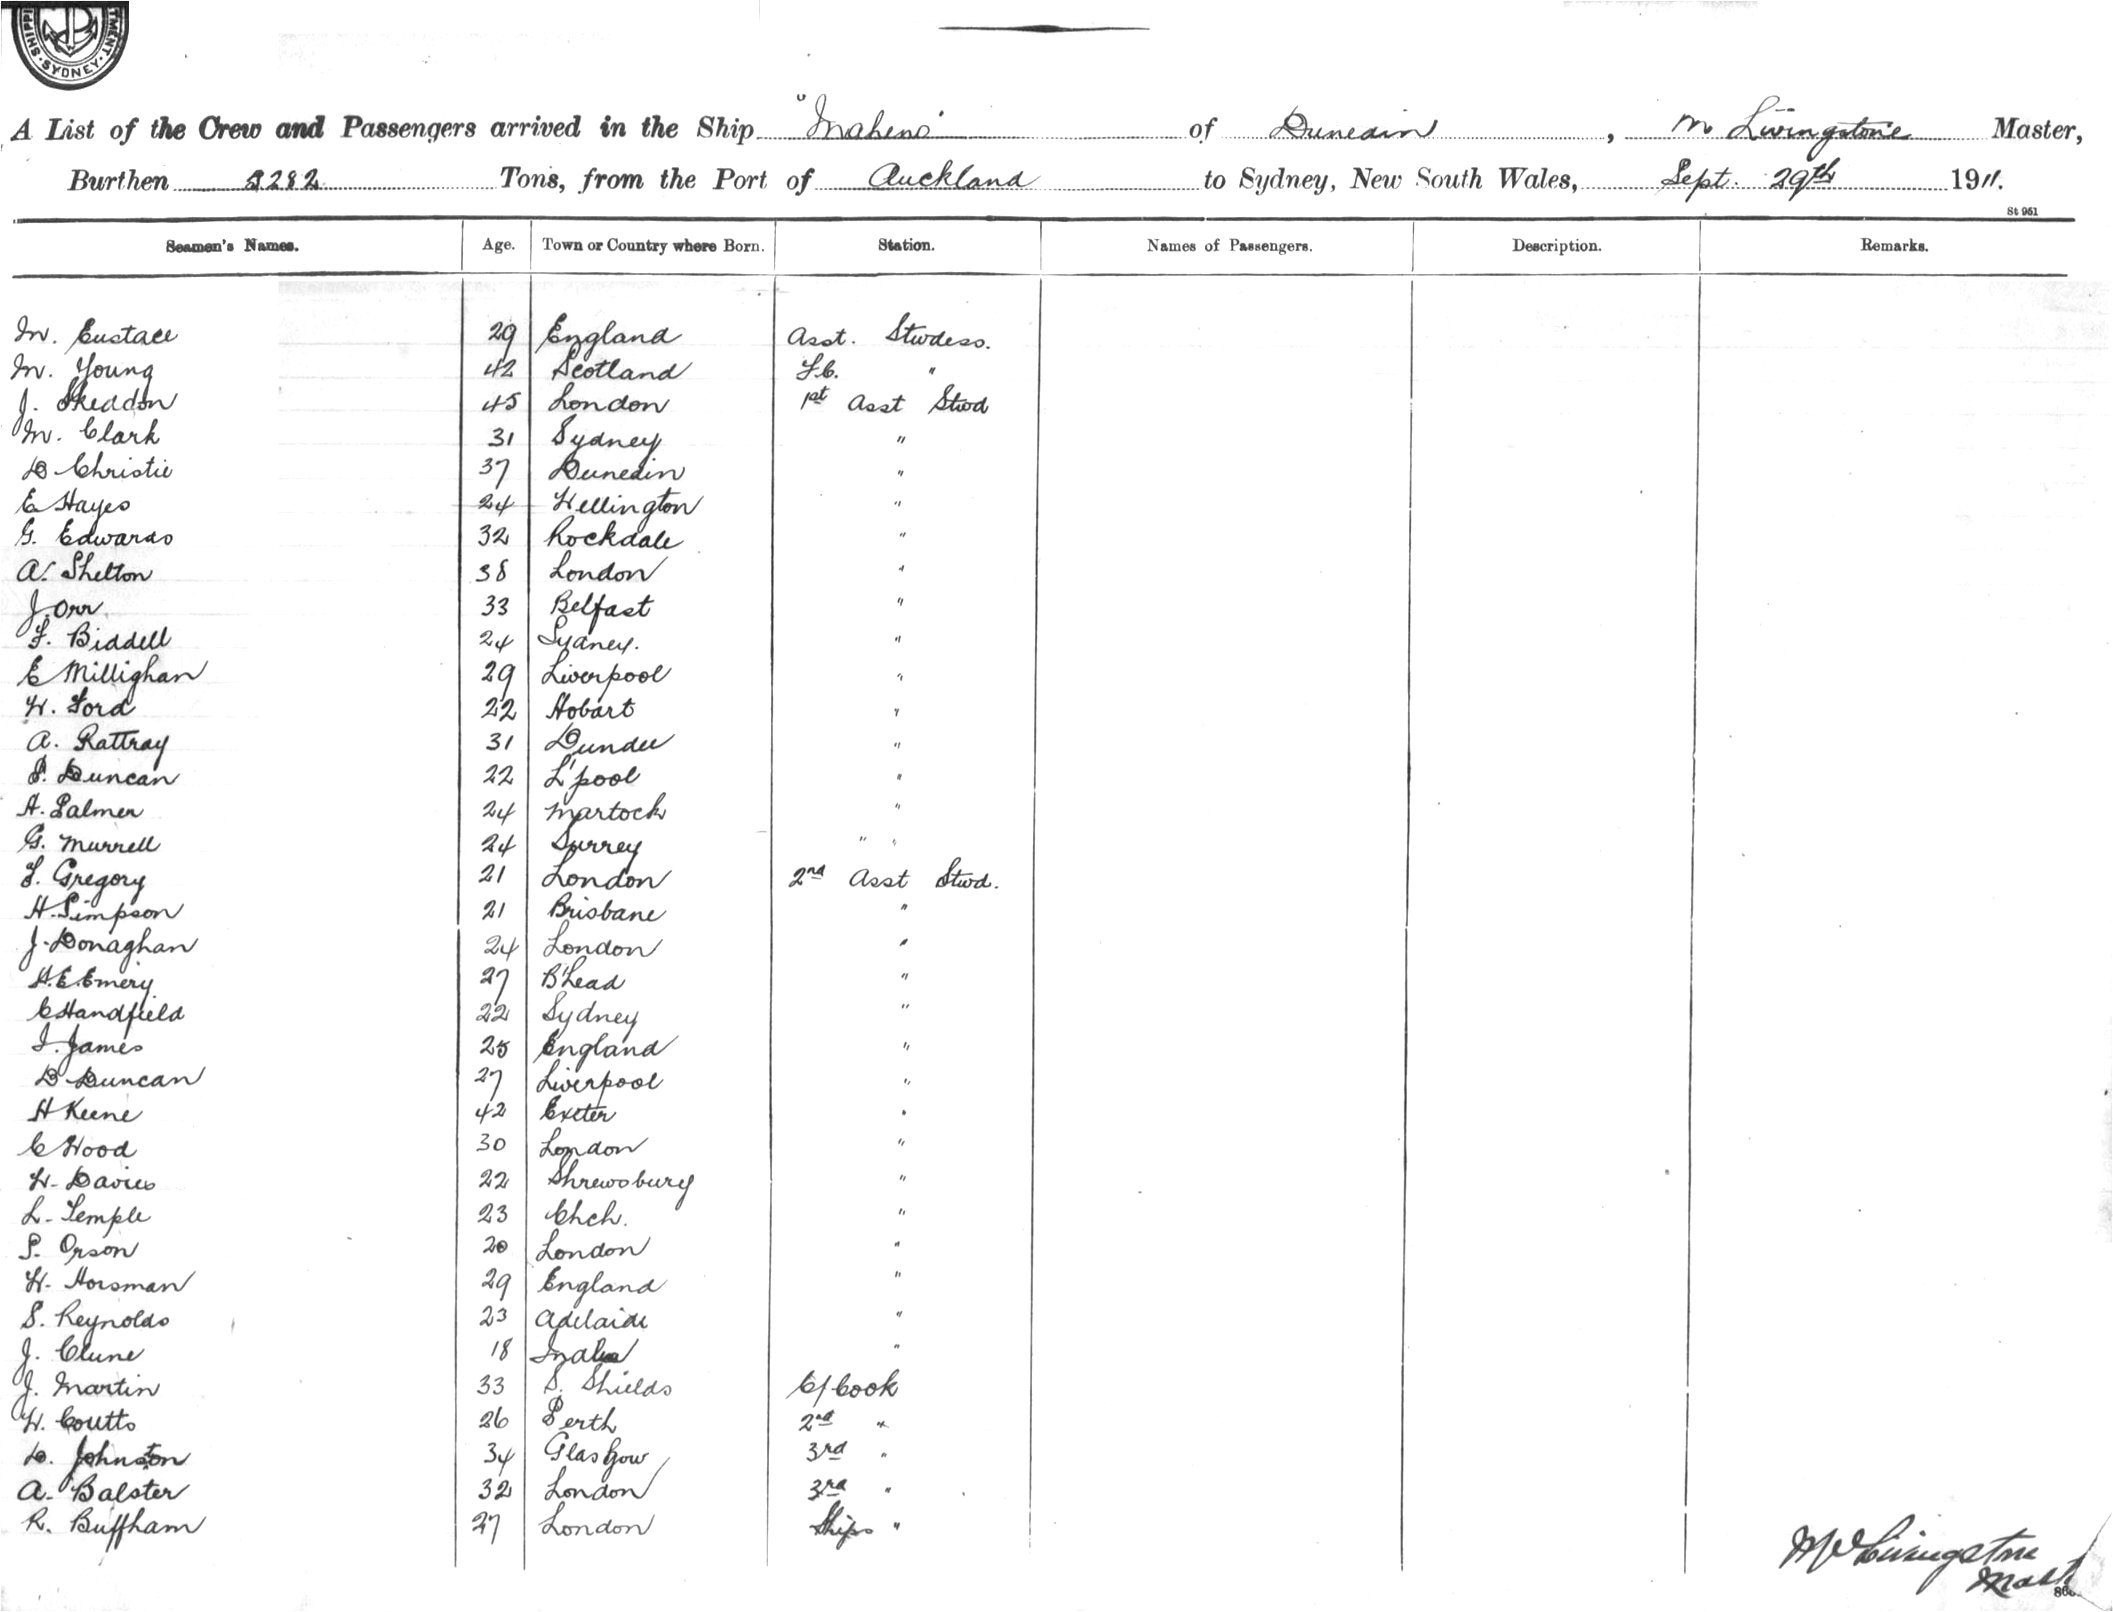 SHIPPI TMENT
SYDNEY
A List of the Crew and Passengers arrived in the Ship "Maheno" of Dunedin, M Livingstone Master,
Burthen 3282 Tons, from the Port of Auckland to Sydney, New South Wales, Sept. 29th 1911.
St 951
Seamen's Names. Age. Town or Country where Born. Station. Names of Passengers. Description. Remarks.
M. Eustace 29 England Asst. Stwdess.
M. Young 42 Scotland F.C. "
J. Skeddon 45 London 1st Asst Stwd
M. Clark 31 Sydney "
D Christie 37 Dunedin "
E Hayes 24 Wellington "
G. Edwards 32 Rockdale "
A. Shelton 38 London "
J. Orr 33 Belfast "
F. Biddell 24 Sydney. "
E Millighan 29 Liverpool "
W. Ford 22 Hobart "
A. Rattray 31 Dundee "
P. Duncan 22 L'pool "
A. Palmer 24 Martock "
G. Murrell 24 Surrey " "
F. Gregory 21 London 2nd Asst Stwd.
H. Simpson 21 Brisbane "
J. Donaghan 24 London "
A.E. Emery 27 B'head "
C Handfield 22 Sydney "
I. James 25 England "
D Duncan 27 Liverpool "
H Keene 42 Exeter "
C Wood 30 London "
W. Davies 22 Shrewsbury "
L. Temple 23 Chch. "
P. Orson 20 London "
W. Horsman 29 England "
S. Reynolds 23 Adelaide "
J. Clune 18 "
J. Martin 33 S. Shields C/Cook
W. Coutts 26 Perth 2nd "
D. Johnston 34 Glasgow 3rd "
A. Balster 32 London 3rd "
R. Buffham 27 London Ships "
M Livingstone
Mast